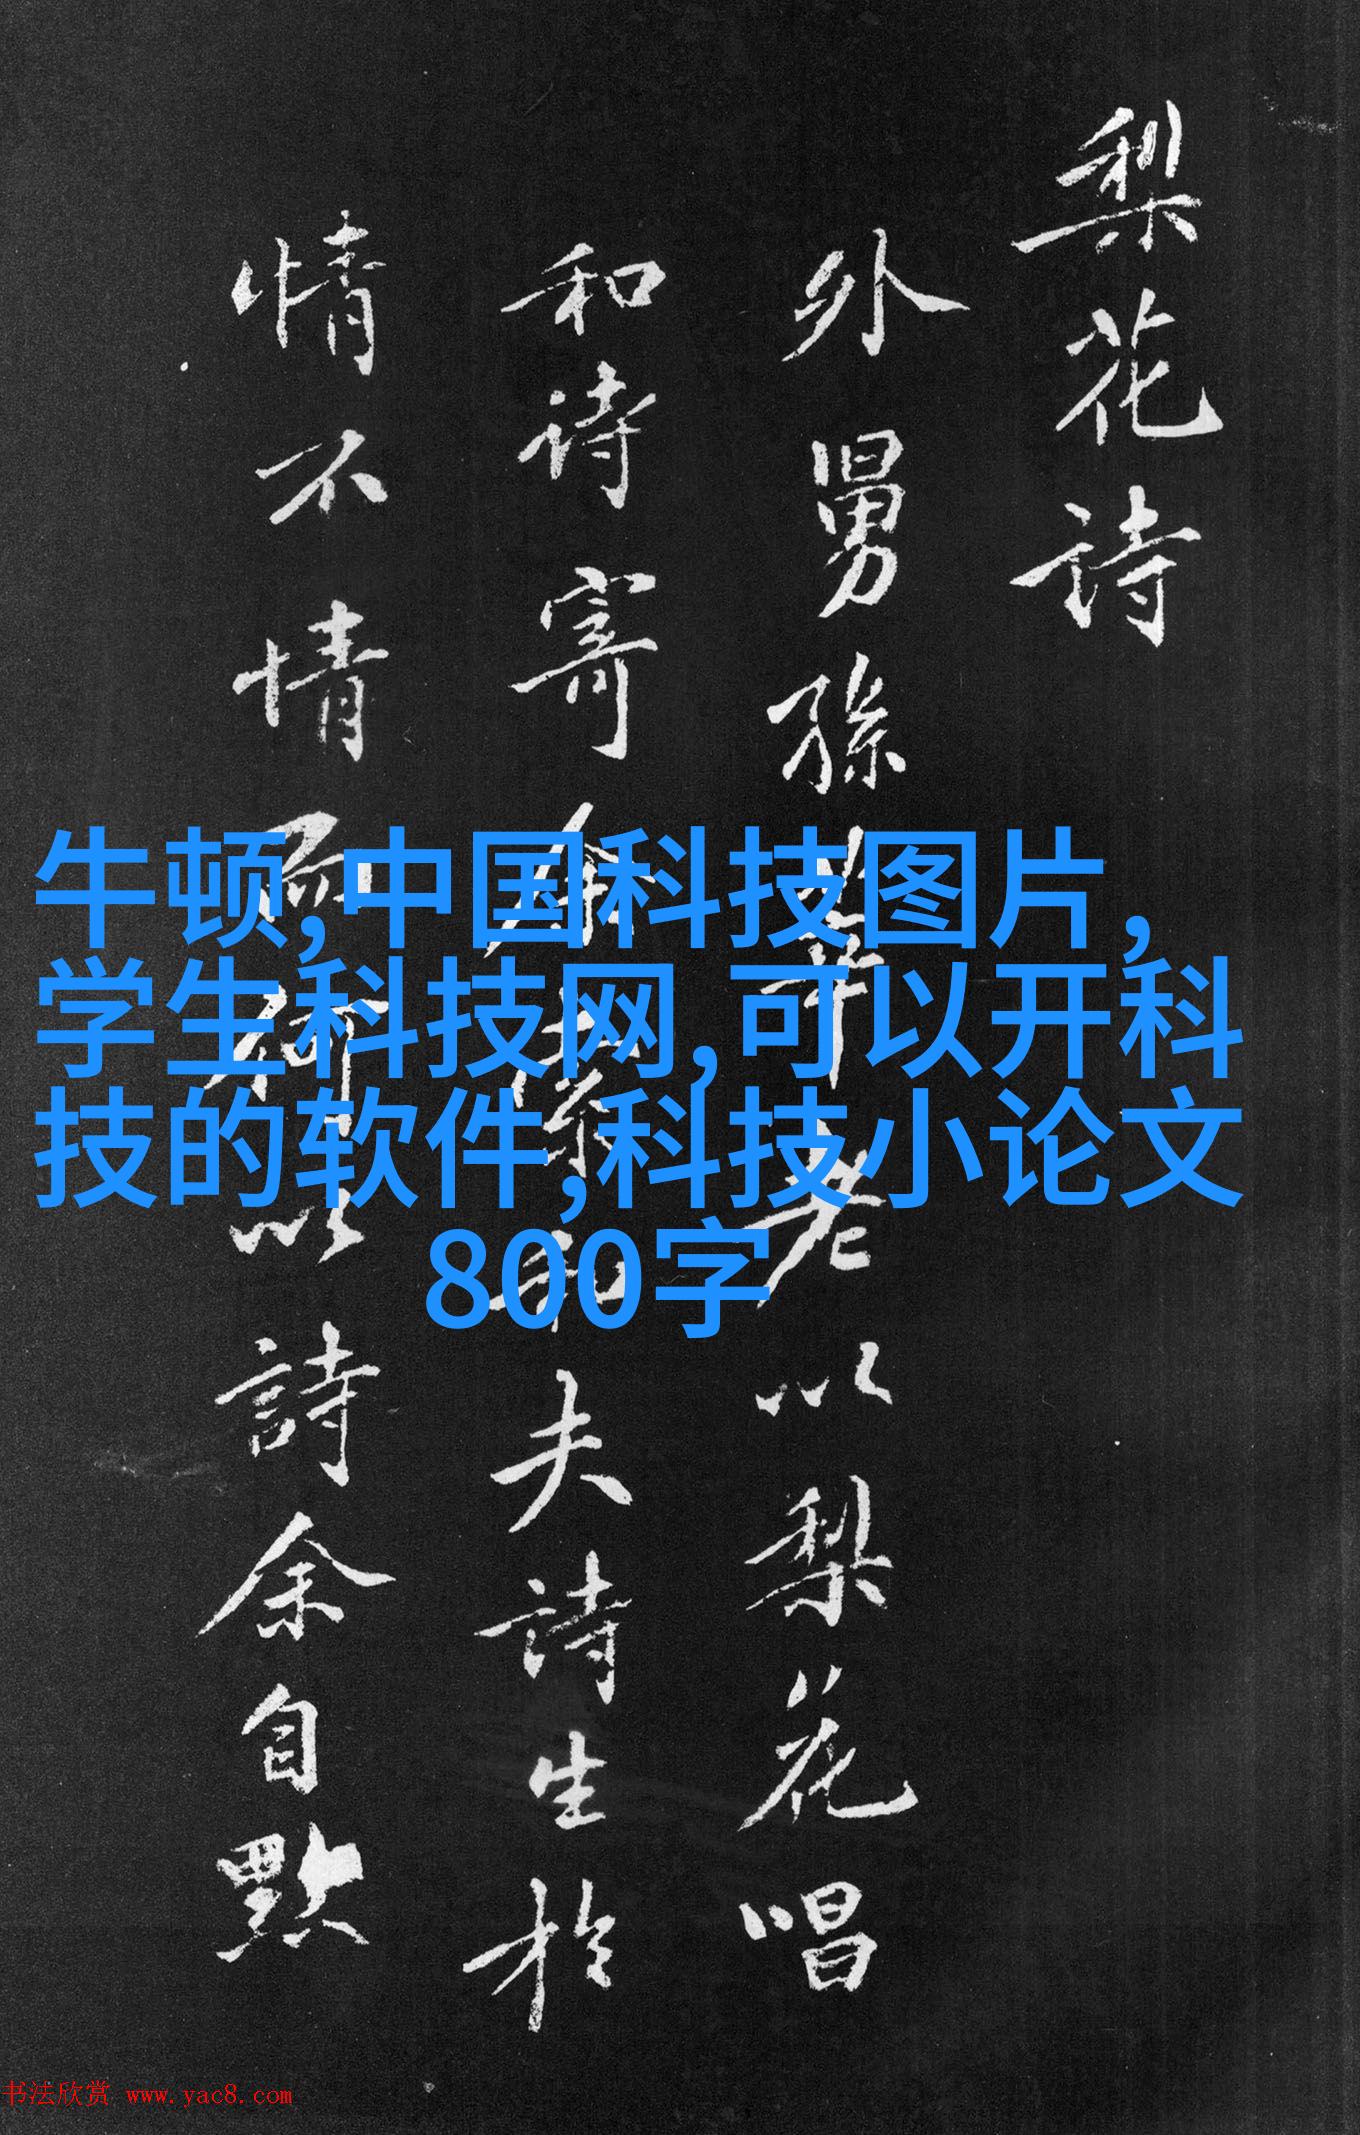 梨花诗
外舅孫莘老以梨花唱
和诗寄余儗和夫詩生於
情不情而術以詩余自黙
牛顿,中国科技图片,
学生科技网,可以开科
技的软件,科技小论文
800字
书法欣赏 www.yac8.com